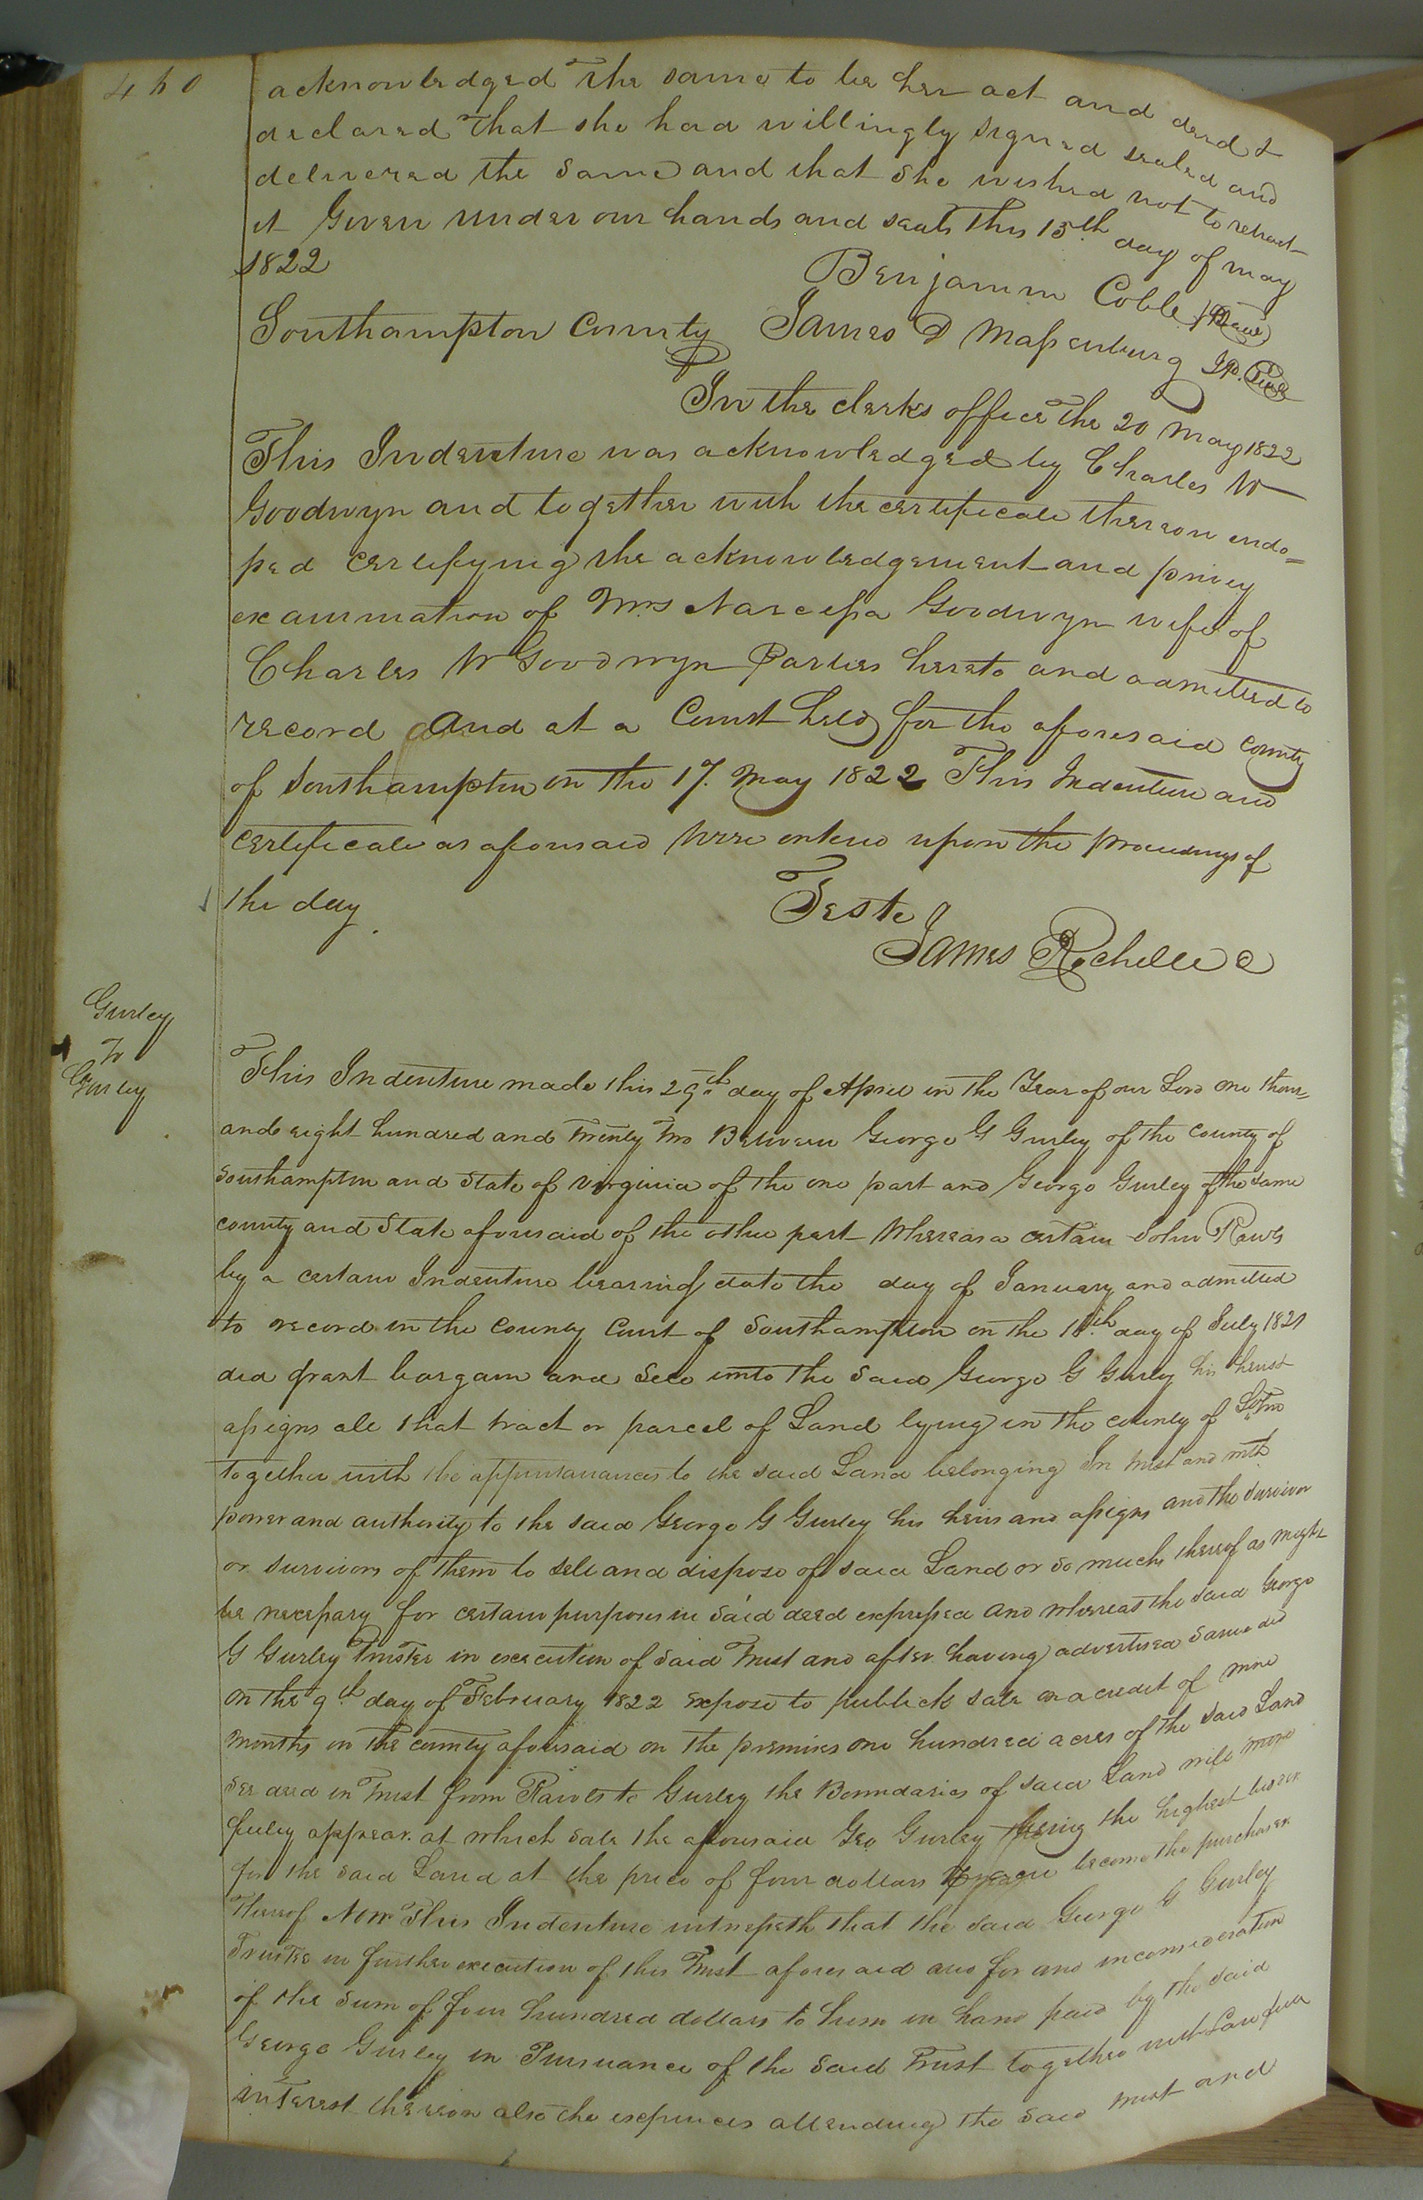 460
acknowledged the same to be her act and deed &
declared that she had willingly signed sealed and
delivered the same and that she wished not to retract
it Given under our hands and seals this 15th day of may
1822
Benjamin Cobb
Southampton County James D Massenburg JP. Seal
In the clerks office the 20 May 1822
This Indenture was acknowledged by Charles W
Goodwyn and together with the certificate thereon endo=
sed certifying the acknowledgement and privy
examination of Mrs Narcissa Goodwyn wife of
Charles W Goodwyn Parties hereto and admitted to
record and at a Court held for the aforesaid county
of Southampton on the 17. May 1822 This Indenture and
certificate as aforesaid were entered upon the proceedings of
the day.
Teste
James Rochelle C
Gurley
To
Gurley
This Indenture made this 29th day of April in the Year of our Lord one thous=
and eight hundred and Twenty Two Between George G Gurley of the county of
Southampton and State of Virginia of the one part and George Gurley of the same
county and State aforesaid of the other part Whereas a certain John Rawls
by a certain Indenture bearing date the day of January and admitted
to record in the County Court of Southampton on the 16th day of July 1821
did grant bargain and Sell unto the said George G Gurley his heirs &
assigns all that tract or parcel of Land lying in the county of
together with the appurtanances to the said Land belonging In trust and with
power and authority to the said George G Gurley his heirs and assigns and the survivor
or survivors of them to sell and dispose of said Land or so much thereof as might
be necessary for certain purposes in said deed expressed and whereas the said George
G Gurley Trustee in execution of said Trust and after having advertised same did
on the 9th day of February 1822 expose to publick sale on a credit of nine
months in the county aforesaid on the premises one hundred acres of the said Land
see deed in Trust from Rawls to Gurley the Boundaries of said Land will more
fully appear. at which sale the aforesaid Geo Gurley being the highest bidder
for the said Land at the price of four dollars became the purchaser
Thereof Now This Indenture witnesseth that the said George G Gurley
Trustee in further execution of this Trust aforesaid and for and in consideration
of the Sum of four hundred dollars to him in hand paid by the said
George Gurley in Pursuance of the said Trust together with Lawfull
interest thereon also the expences attending the said trust and